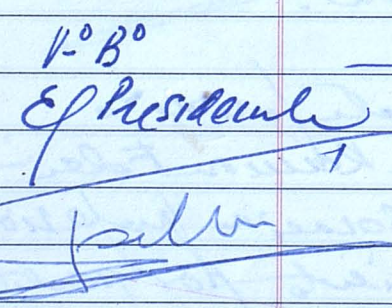 Vº Bº
El Presidente